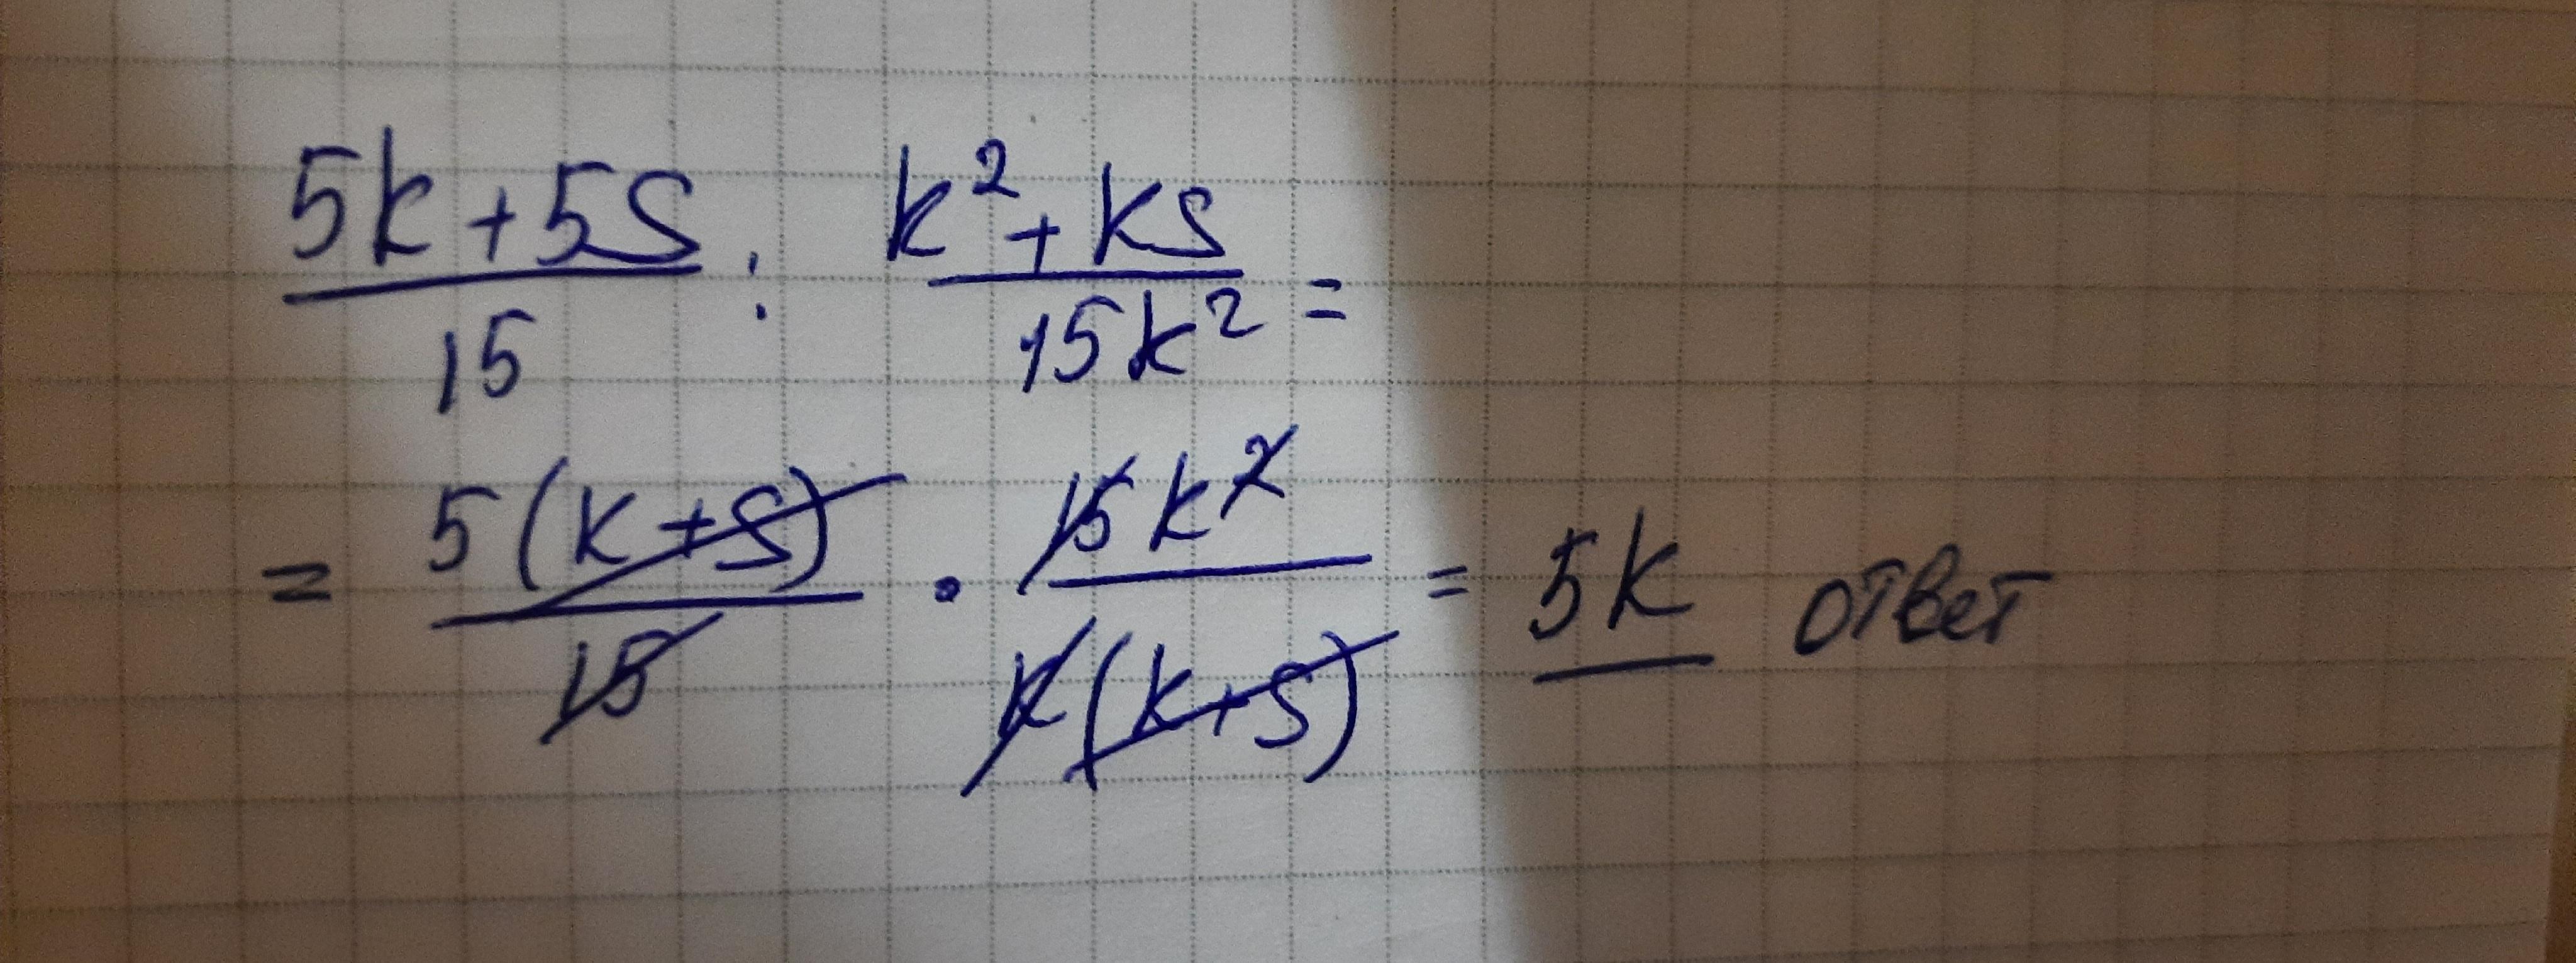 5k+5S / 15 : k²+ks / 15k² =
= 5(k+S) / 15 · 15k² / k(k+S) = 5k ответ